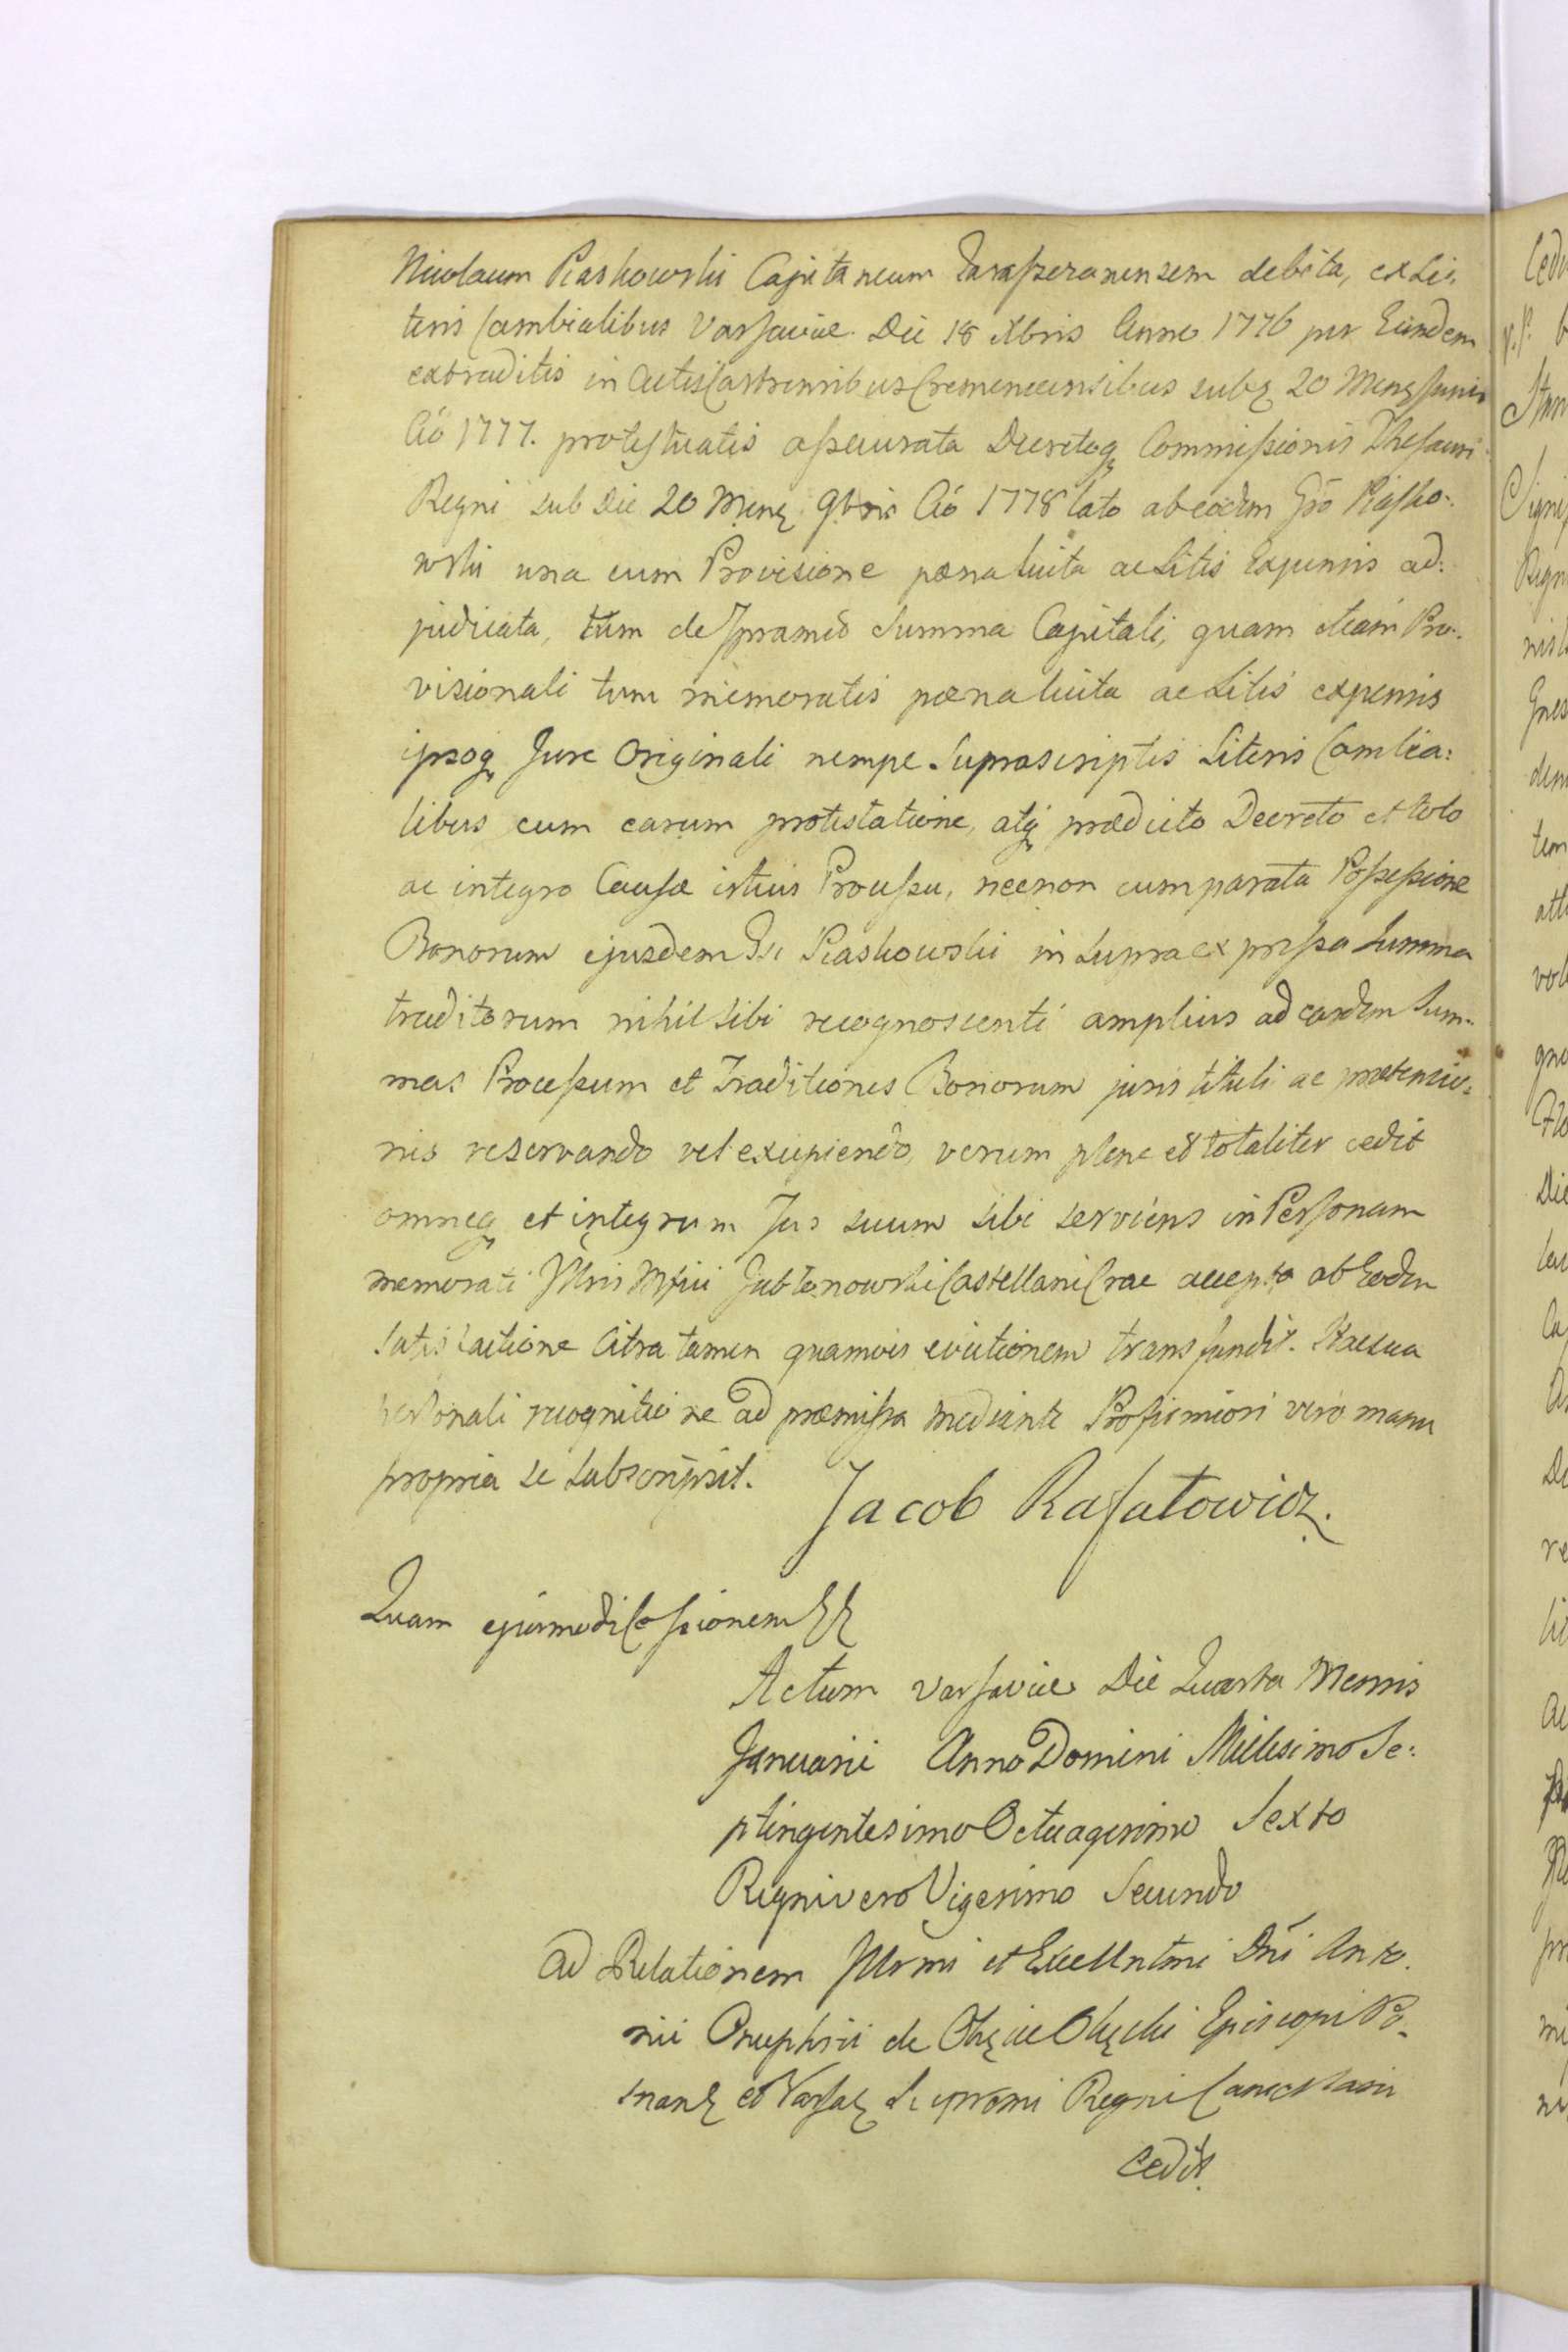 Nicolaum Piaskowski Capitaneum Taraszczanensem debita, ex Li:
teris Cambialibus Varsaviæ Die 18 Xbris Anno 1776 per Eundem
extraditis in Actis Castrensibus Cremenecensibus sub 20 Mens Junii
Aō 1777. protestuatis assecurata Decretoq Commissionis Thesauri
Regni sub Die 20 Mens 9bris Aō 1778 lato ab eodem Gso Piasko:
wski una cum Provisione pæna luita ac Litis Expensis ad:
judicata, tum de Ipramed Summa Capitali, quam etiam Pro:
visionali tum memoratis pæna luita ac Litis expensis
ipsoq Jure Originali nempe Suprascriptis Literis Cambia:
libus cum earum protestatione, atq prædicto Decreto et toto
ac integro Causæ istius Processu, necnon cum parata Possessione
Bonorum ejusdem Gsi Piaskowski in supra expressa Summa
traditorum nihil sibi recognoscenti amplius ad easdem Sum:
mas Processum et Traditiones Bonorum juris tituli ac prætensio:
nis reservando vel excipiendo, verum plene et totaliter cedit
omneq et integrum Jus suum sibi serviens in Personam
memorati Illris Mfici Jabłonowski Castellani Crac accepta ab Eodem
satisfactione Citra tamen quamvis evictionem transfundit. Hac sua
personali recognitione ad præmissa mediante Pro firmiori vero manu
propria se subscripsit.
Jacob Rafałowicz.
Quam ejusmodi Cessionem
Actum Varsaviæ Die Quarta Mensis
Januarii Anno Domini Millesimo Se:
ptingentesimo Octuagesimo Sexto
Regni vero Vigesimo Secundo
Ad Relationem Illrmi et Excellntmi Dni Anto:
nii Onuphrii de Okęcie Okęcki Episcopi Po:
snan et Varsa Supremi Regni Cancellarii
Cedit.